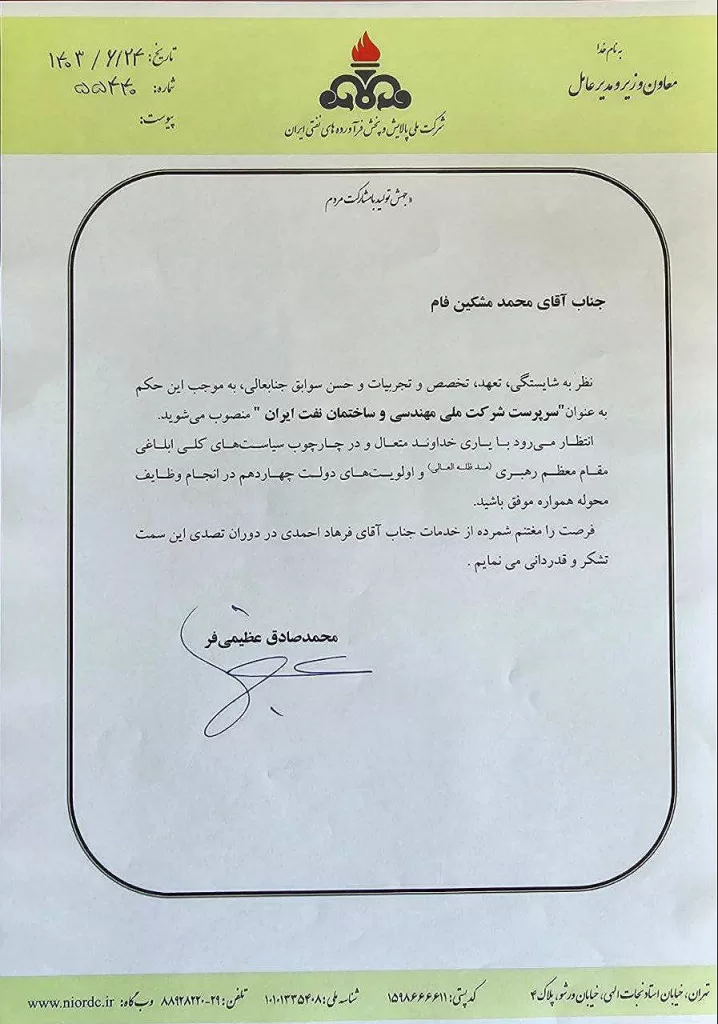 به نام خدا
معاون وزیر و مدیرعامل
شرکت ملی پالایش و پخش فرآورده های نفتی ایران
تاریخ: ۱۴۰۳/۶/۲۴
شماره: ۵۵۴۴۰
پیوست:
«جهش تولید با مشارکت مردم
جناب آقای محمد مشکین فام
نظر به شایستگی، تعهد، تخصص و تجربیات و حسن سوابق جنابعالی، به موجب این حکم
به عنوان"سرپرست شرکت ملی مهندسی و ساختمان نفت ایران " منصوب می‌شوید.
انتظار می‌رود با یاری خداوند متعال و در چارچوب سیاست‌های کلی ابلاغی
مقام معظم رهبری (مد ظله العالی) و اولویت‌های دولت چهاردهم در انجام وظایف
محوله همواره موفق باشید.
فرصت را مغتنم شمرده از خدمات جناب آقای فرهاد احمدی در دوران تصدی این سمت
تشکر و قدردانی می نمایم .
محمدصادق عظیمی‌فر
تهران، خیابان استاد نجات الهی، خیابان ورشو، پلاک ۴ کدپستی: ۱۵۹۸۶۶۶۶۱۱ شناسه ملی: ۱۰۱۰۱۳۳۵۴۰۸ تلفن: ۲۹-۸۸۹۲۸۲۲۰ وب‌گاه: www.niordc.ir